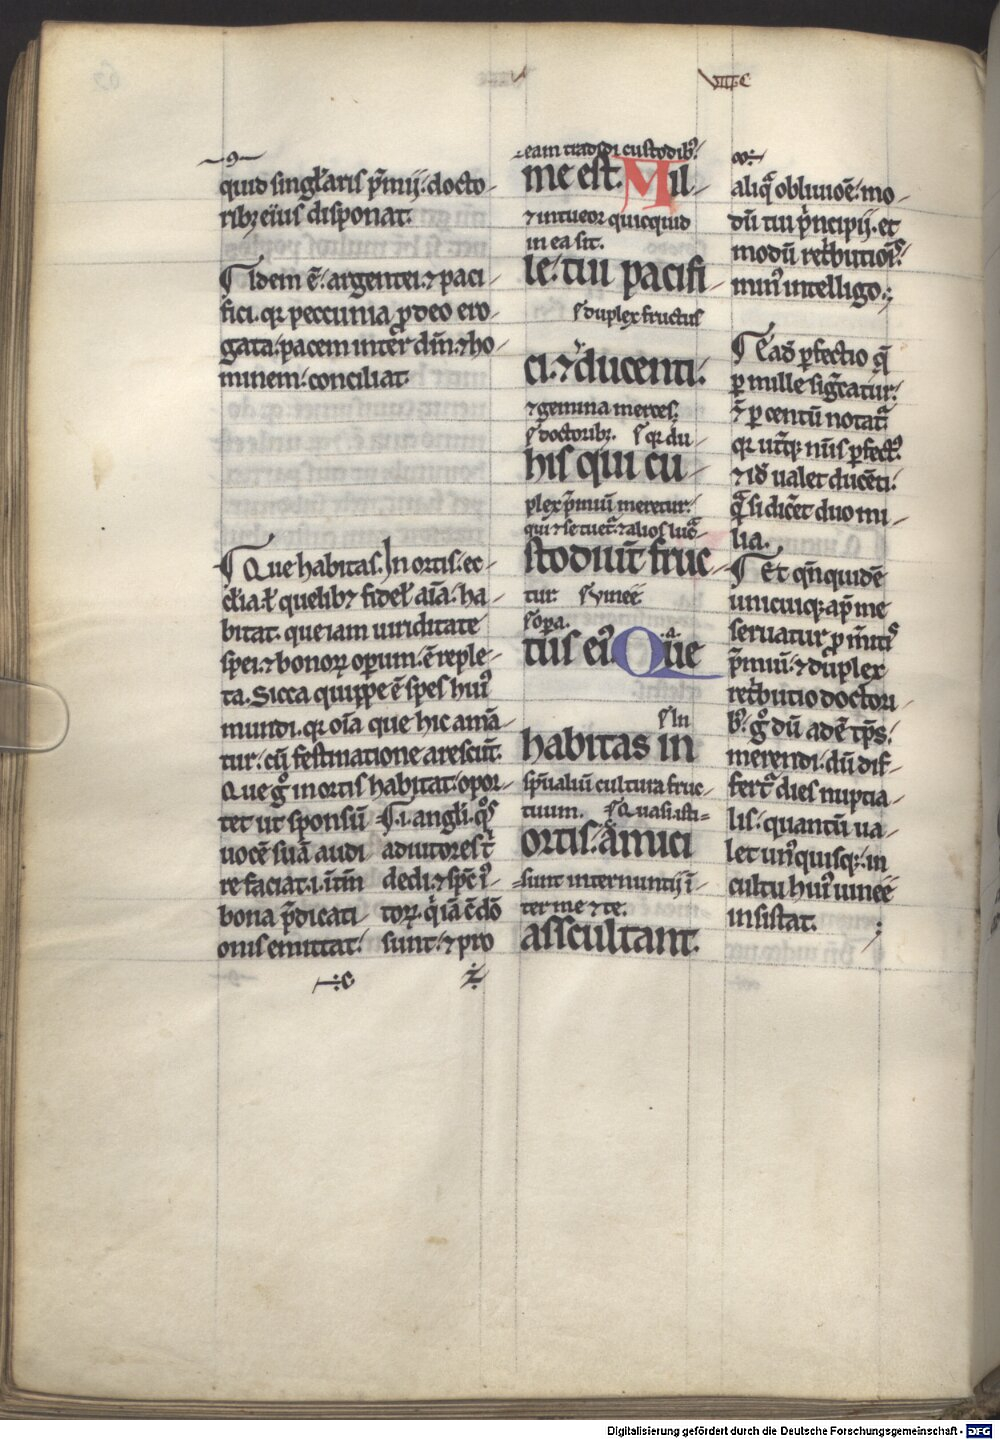 VIII.C
quid singlaris p̄mij: docto-
ribȝ eius disponat.
Idem ē: argentei. ⁊ paci
fici. qꝛ peccunia ꝓ deo ero-
gata: pacem inter dn̄m. ⁊ ho-
minem: conciliat.
Que habitas. In ortis. ec-
cl̄ia. ł quelibȝ fidel̄ aīa: ha-
bitat. que iam uiriditate
spei. ⁊ bonoꝝ operum: ē reple-
ta. Sicca quippe ē spes huiꝰ
mundi. qꝛ oīa que hic amā-
tur: cū festinatione arescūt.
Que gͦ in ortis habitat: opor-
tet ut sponsū
uocē suā audi
re faciat. i. c̄tın
bona p̄dicati
onis emittat.
.i. angli. qͦs
adiutores t̄
dedi. ⁊ sp̄c ı̓
toꝝ. q̇ iā ē dō
sunt: ⁊ pro
eam tradidi custodibꝰ.
me est. Mil-
⁊ intueor quicquid
in ea sit.
le: tui pacifi
s duplex fructus
ci. ⁊ ducenti.
⁊ gemina merces.
s doctoribȝ. s qꝛ du-
his qui cu
plex p̄miū meretur.
qui ⁊ se tuet̄. ⁊ alios luc̄
stodiūt fruc-
tur. s vineē
s opa.
tus eiꝰ. Que
s In
habitas in
sp̄ualiū cultura fruc-
tuum. s Quasi isti-
ortis: amici
-sunt internuntij ı̄
ter me ⁊ te.
asscultant.
aliq̄ obliuioē: mo-
dū tui principij. et
modū ret̄butiois.
minꝰ intelligo.
Eadē ꝑfectio q̄
ꝑ mille sig̅catur:
⁊ ꝑ centū notat̄.
qꝛ utq̄ nūs ꝑfectꝰ.
⁊ id ualet ducēti:
q̄ si dic̄et duo mi-
lia.
Et qn̄quidē
unicuiqꝫ ap̄ me
seruatur ꝓ m̄itis
p̄miū: ⁊ duplex
ret̄butio doctori
bꝰ: gͦ dū adē tp̄s:
merendi. dū dif-
fert̄ dies nuptia-
lis: quantū ua-
let unꝰquisqꝫ: in
cultu huiꝰ uineē
insistat.
Digitalisierung gefördert durch die Deutsche Forschungsgemeinschaft - DFG